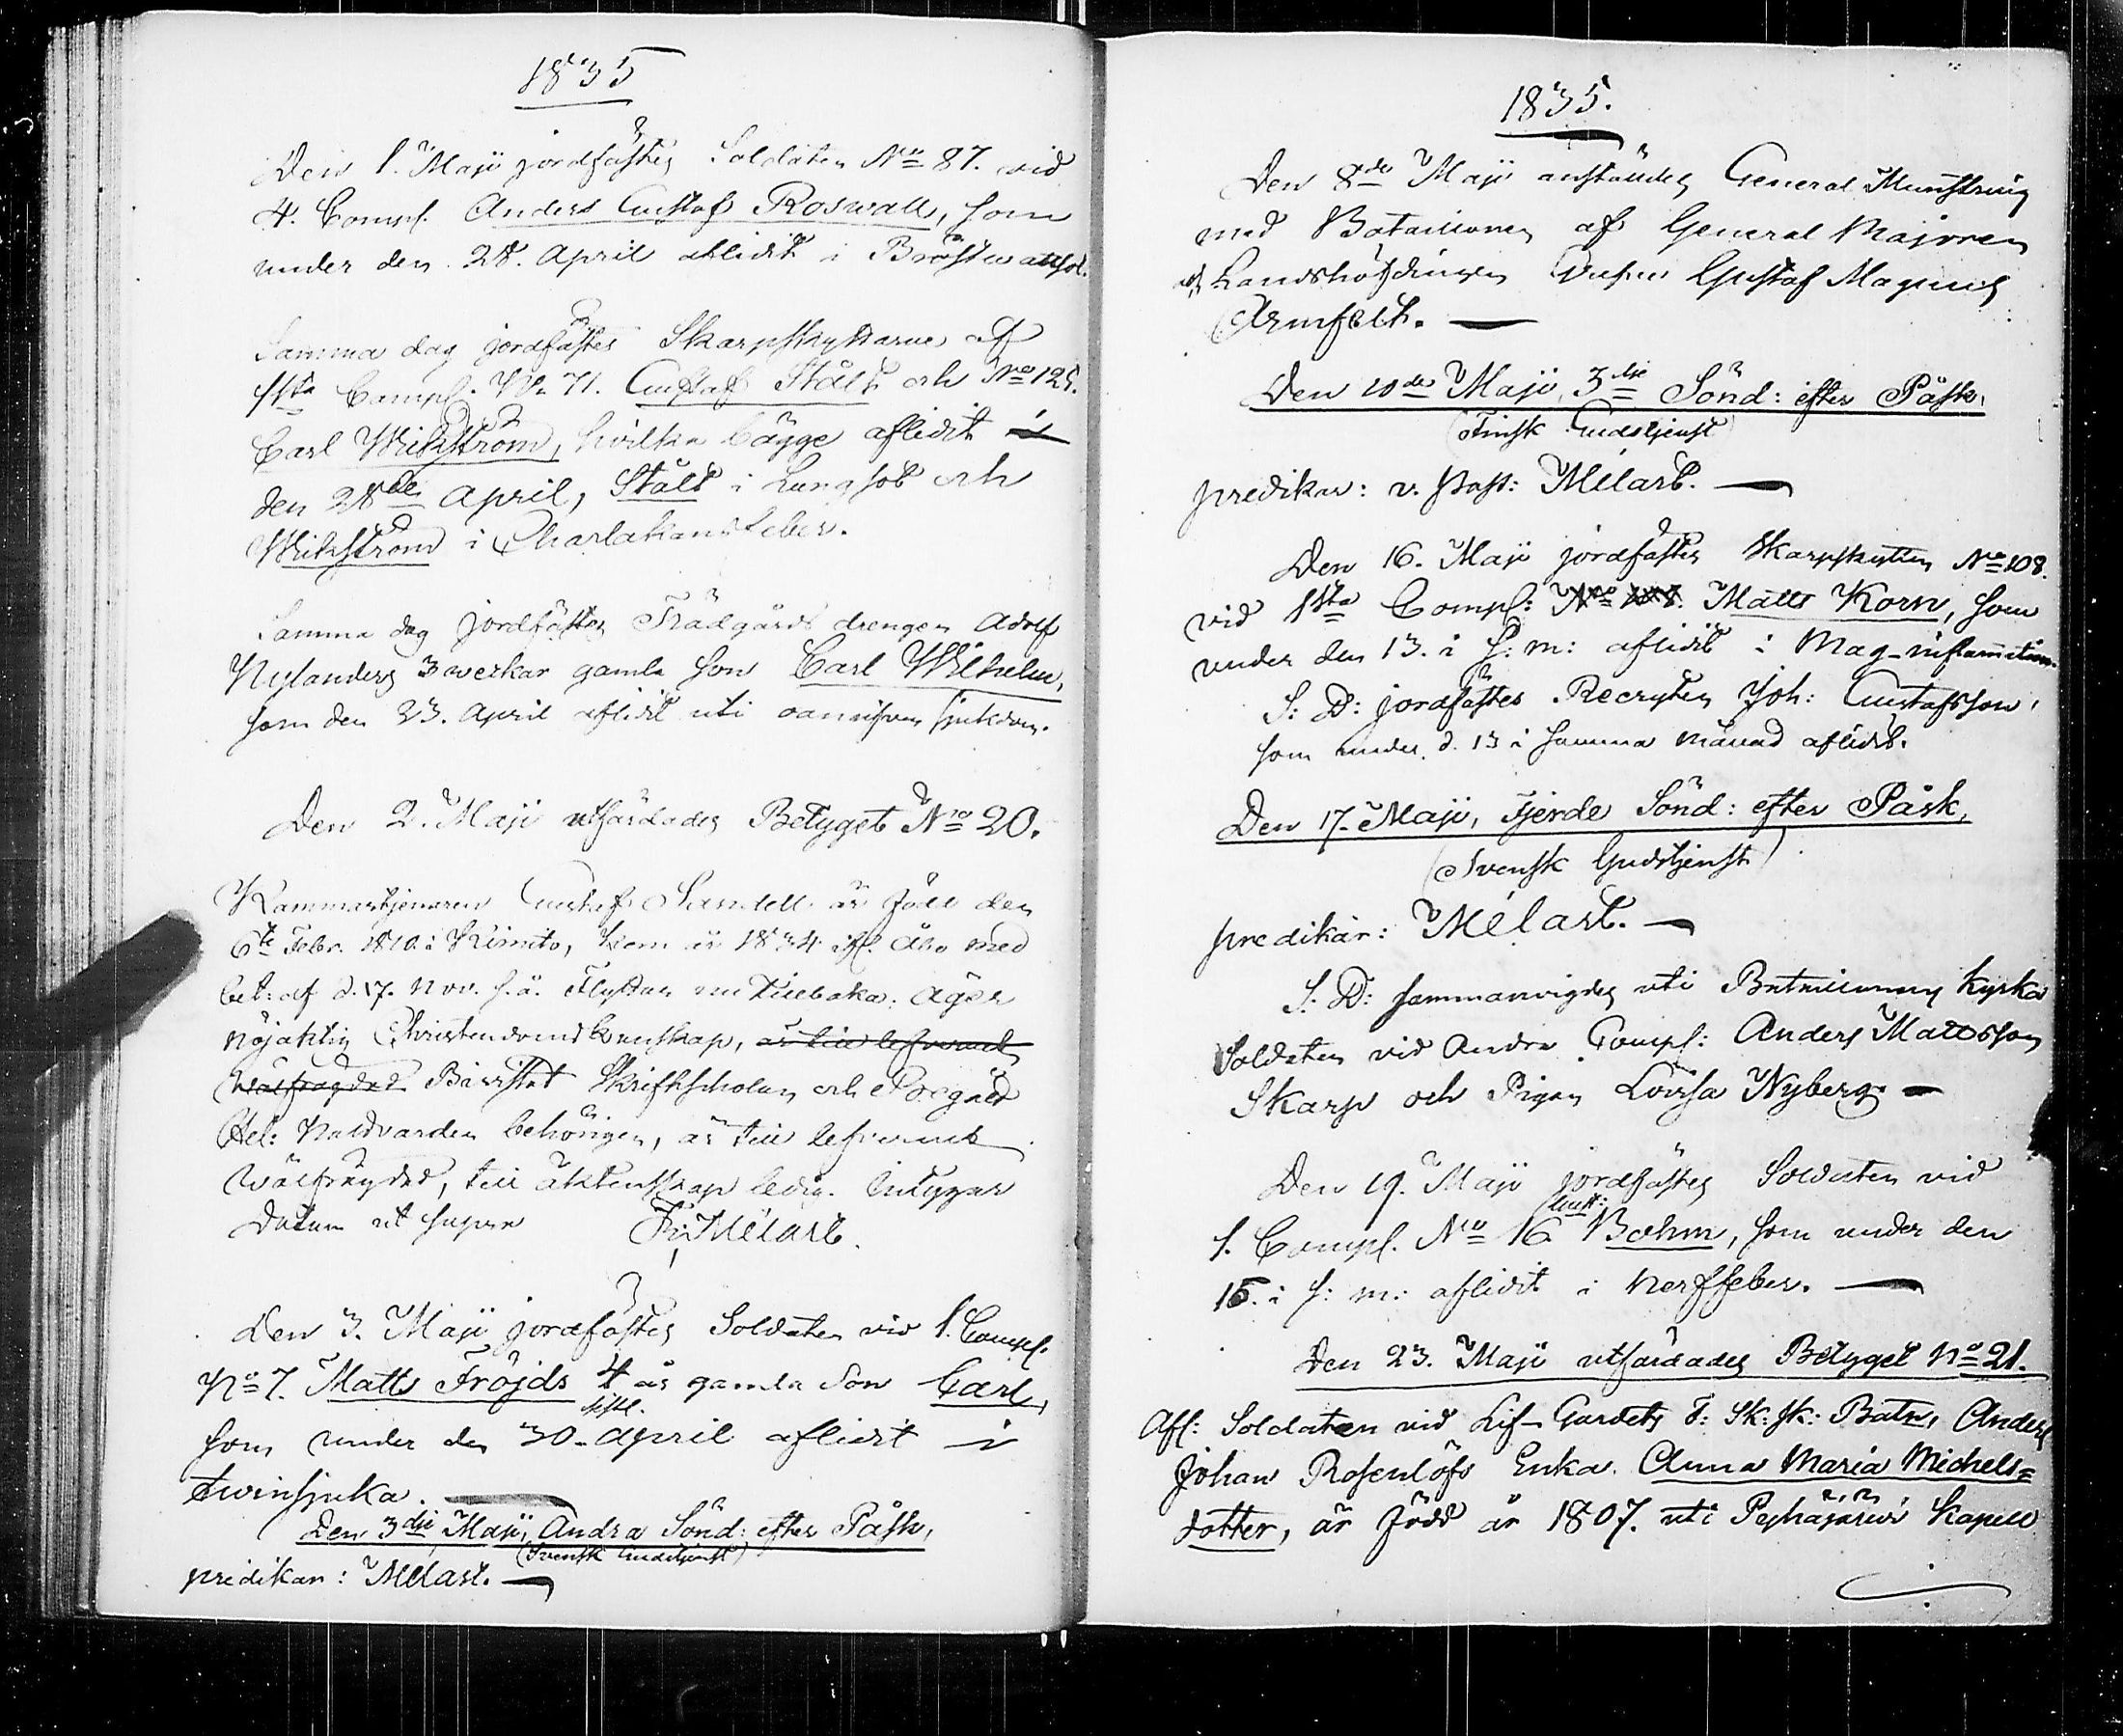 1835
Den 1. Maji jordfästes Soldaten No 87. vid
4. Comp. Anders Gustaf Roswall, som
under den 28. April aflidit i Bröstwattsot.
Samma dag jordfästes Skarpskyttarne af
1sta Comp. No 71. Gustaf Stålt och No 125.
Carl Wickström, hvilka bägge aflidit i
den 28de April, Stålt i Lungsot och
Wickström i Charlakansfeber.
Samma dag jordfästes Trädgårds drengen Adolf
Nylanders 3 weckor gamla son Carl Wilhelm,
som den 23. April aflidit uti oangifven sjukdom.
Den 2. Maji utfärdades Betyget No 20.
Kammartjenaren Gustaf Sandell är född den
6te Febr. 1810 i Kimito, kom år 1834 ifr. Åbo med
bet: af d. 17. Nov. s. å. Flyttar nu tillbaka. Äger
nöjaktig Christendomskunskap, är till lefvernet
wälfrägdad Bivistat Skriftscholan och Begått
Hel: Nattvarden behörigen, är till lefvernet
wälfrägdad, till äktenskap ledig. Intygar
Datum ut supra Fr. Mélart.
Den 3. Maji jordfästes Soldaten vid 1. Comp.
No 7. Matts Fröjds 4 år gamla Son Carl,
som under den 30. April aflidit i
twinsjuka.
Den 3dje Maji, Andra Sönd: efter Påsk,
(Svensk Gudstjenst)
predikar: Mélart.
1835.
Den 8de Maji anstäldes General Munstring
med Bataillonen af General Majoren
och Landshöfdingen Gustaf Magnus
Armfelt.
Den 10de Maji, 3dje Sönd: efter Påsk,
(Finsk Gudstjenst)
predikar: v. Past: Mélart.
Den 16. Maji jordfästes Skarpskytten No 108.
vid 1sta Comp: No 108. Matts Korn, som
under den 13. i s: m: aflidit i Mag-inflamation.
S: D: jordfästes Recryten Joh: Gustafsson,
som under d. 13 i samma månad aflidit.
Den 17. Maji, Fjerde Sönd: efter Påsk,
(Svensk Gudstjenst)
predikar: Mélart.
S: D: sammanvigdes uti Bataillonens Kyrka
Soldaten vid Andra Comp: Anders Mattsson
Skarp och Pigan Lovisa Nyberg.
Den 19. Maji jordfästes Soldaten vid
1. Comp. No 16. Gust: Bohm, som under den
15. i s: m: aflidit i Nerffeber.
Den 23. Maji utfärdades Betyget No 21.
Afl: Soldaten vid Lif-Gardets F: Sk: sk: Batn, Anders
Johan Rosenlöfs Enka Anna Maria Michels=
dotter, är född år 1807. uti Kapell